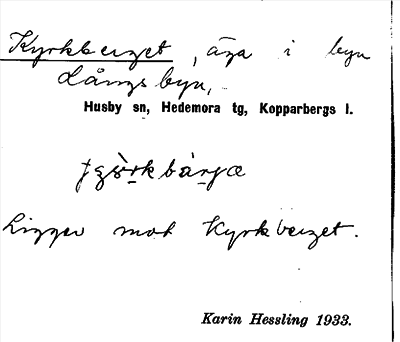 Kyrkberget, äga i byn
Långsbyn,
Husby sn, Hedemora tg, Kopparbergs l.
Ligger mot Kyrkberget.
Karin Hessling 1933.